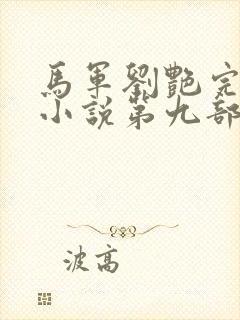 馬軍劉艷完
小說第九部
波高